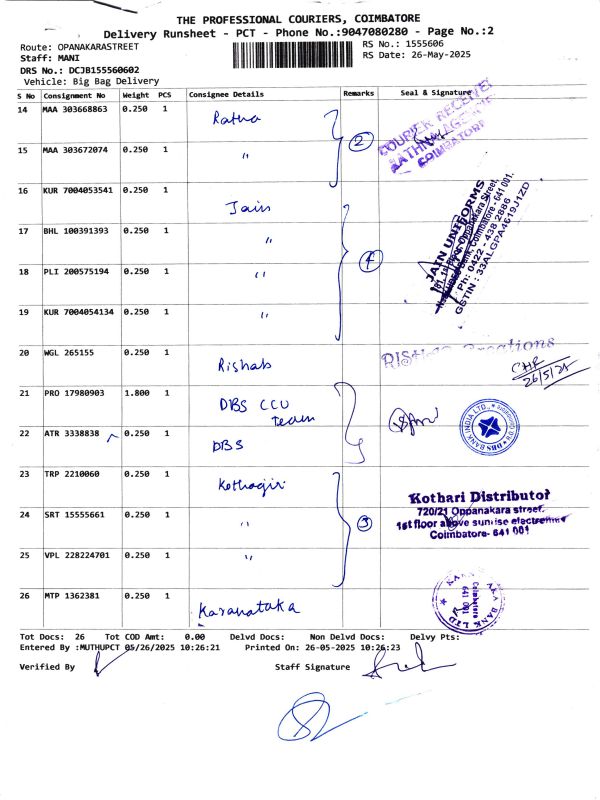 THE PROFESSIONAL COURIERS, COIMBATORE
Delivery Runsheet - PCT - Phone No.:9047080280 - Page No.:2
Route: OPANAKARASTREET
RS No.: 1555606
Staff: MANI
RS Date: 26-May-2025
DRS No.: DCJB155560602
Vehicle: Big Bag Delivery
S No Consignment No Weight PCS Consignee Details Remarks Seal & Signature
14 MAA 303668863 0.250 1 Ratna
2
COURIER RECEIVED
COIMBATORE
15 MAA 303672074 0.250 1 "
16 KUR 7004053541 0.250 1 Jain
17 BHL 100391393 0.250 1 "
4
JAIN UNIFORMS
Oppanakara Street,
Coimbatore - 641 001.
Ph: 0422 - 438 2886
GSTIN : 33ALGPA4619J1ZD
18 PLI 200575194 0.250 1 "
19 KUR 7004054134 0.250 1 "
20 WGL 265155 0.250 1 Rishab
Creations
26/5/25
21 PRO 17980903 1.800 1 DBS CCU
Team
DBS BANK INDIA LTD.
22 ATR 3338838 0.250 1 DBS
23 TRP 2210060 0.250 1 Kothagiri
Kothari Distributor
720/21 Oppanakara street.
1st floor above sunrise electronics
Coimbatore- 641 001
24 SRT 15555661 0.250 1 "
3
25 VPL 228224701 0.250 1 "
26 MTP 1362381 0.250 1 Karanataka
BANK LTD
Coimbatore
641 001
Tot Docs: 26 Tot COD Amt: 0.00 Delvd Docs: Non Delvd Docs: Delvy Pts:
Entered By :MUTHUPCT 05/26/2025 10:26:21 Printed On: 26-05-2025 10:26:23
Verified By Staff Signature